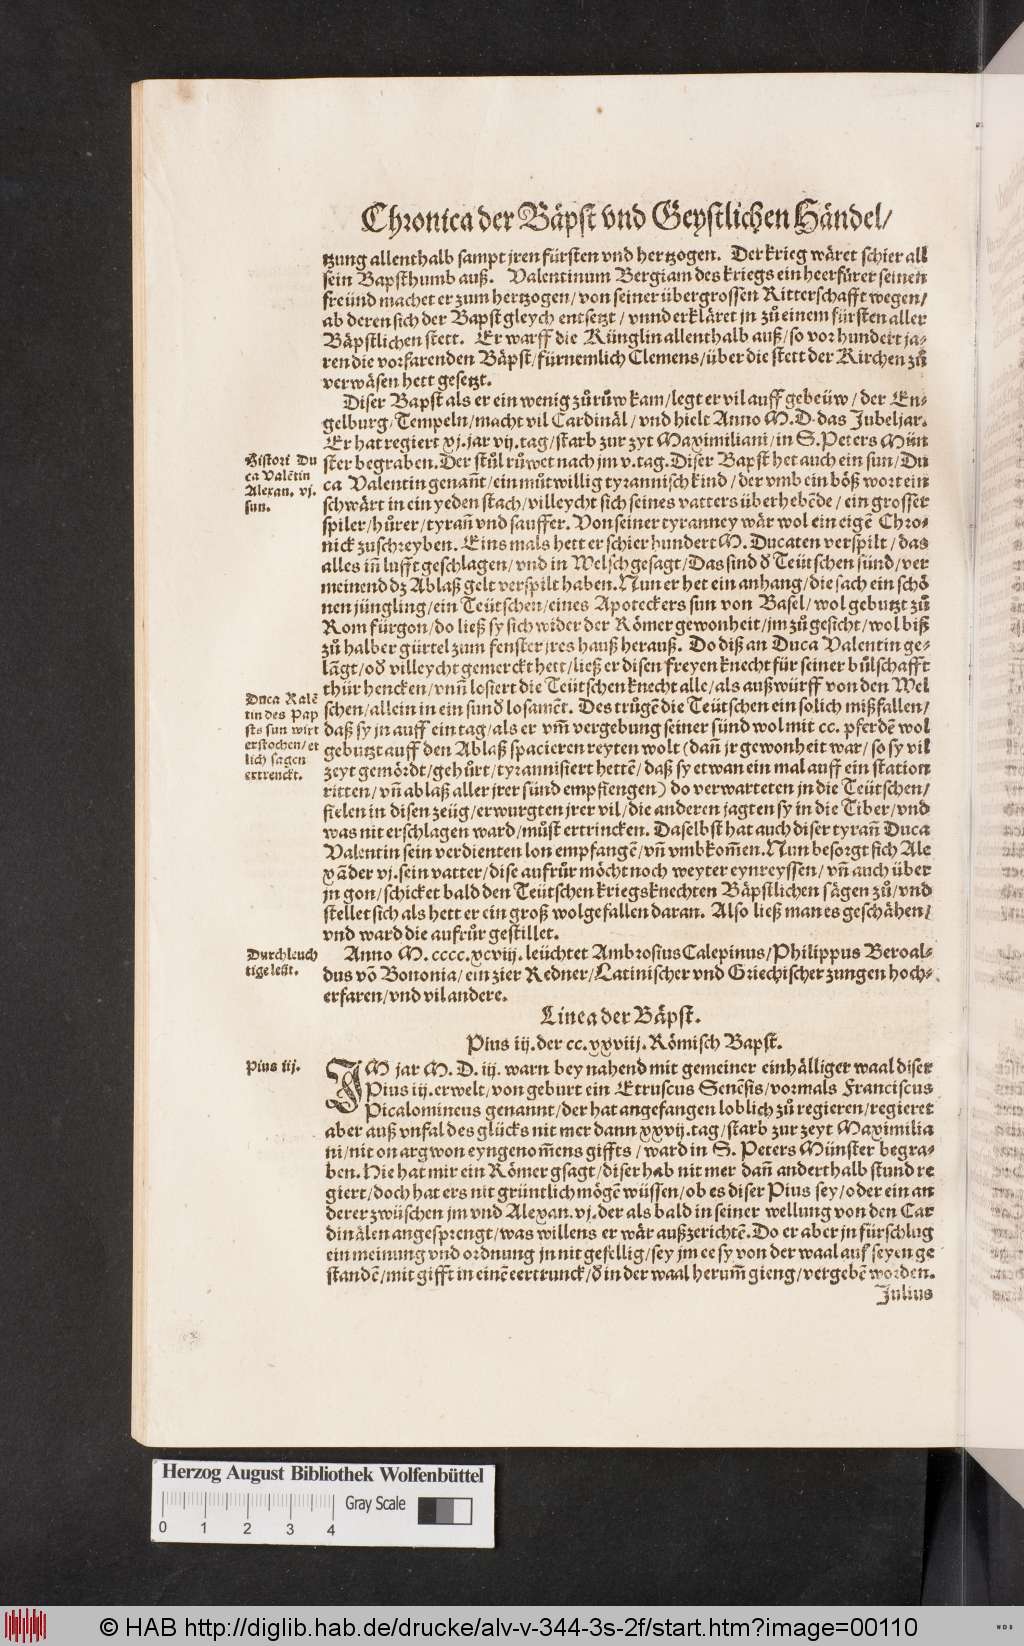 Chronica der Bäpst vnd Geystlichen Händel/
tzung allenthalb sampt jren fürsten vnd hertzogen. Der krieg wäret schier all
sein Bapsthumb auß. Valentinum Bergiam des kriegs ein heerfürer seinen
freünd machet er zum hertzogen/ von seiner übergrossen Ritterschafft wegen/
ab deren sich der Bapst gleych entsetzt/ vnnd erkläret jn zů einem fürsten aller
Bäpstlichen stett. Er warff die Künglin allenthalb auß/ so vor hundert ja-
ren die vorfarenden Bäpst/ fürnemlich Clemens/ über die stett der Kirchen zů
verwäsen hett gesetzt.
Diser Bapst als er ein wenig zů růw kam/ legt er vil auff gebeüw/ der En-
gelburg/ Tempeln/ macht vil Cardinäl/ vnd hielt Anno M.D. das Jubeljar.
Er hat regiert xj. jar vij. tag/ starb zur zyt Maximiliani/ in S. Peters Mün
ster begraben. Der stůl růwet nach jm v. tag. Diser Bapst het auch ein sun/ Du
ca Valentin genañt/ ein můtwillig tyrannisch kind/ der vmb ein böß wort ein
schwärt in ein yeden stach/ villeycht sich seines vatters überhebēde/ ein grosser
spiler/ hůrer/ tyrañ vnd sauffer. Von seiner tyranney wär wol ein eigē Chro-
nick zuschreyben. Eins mals hett er schier hundert M. Ducaten verspilt/ das
alles iñ lufft geschlagen/ vnd in Welsch gesagt/ Das sind d̄ Teütschen sünd/ ver
meinend dz Ablaß gelt verspilt haben. Nun er het ein anhang/ die sach ein schö
nen jüngling/ ein Teütschen/ eines Apoteckers sun von Basel/ wol gebutzt zů
Rom fürgon/ do ließ sy sich wider der Römer gewonheit/ jm zů gesicht/ wol biß
zů halber gürtel zum fenster jres hauß herauß. Do diß an Duca Valentin ge-
lāgt/ od̄ villeycht gemerckt hett/ ließ er disen freyen knecht für seiner bůlschafft
thür hencken/ vnñ losiert die Teütschen knecht alle/ als außwürff von den Wel
schen/ allein in ein sund̄ losamēt. Des trůgē die Teütschen ein solich mißfallen/
daß sy jn auff ein tag/ als er vm̄ vergebung seiner sünd wol mit cc. pferdē wol
gebutzt auff den Ablaß spacieren reyten wolt (dañ jr gewonheit war/ so sy vil
zeyt gemördt/ gehůrt/ tyrannisiert hettē/ daß sy etwan ein mal auff ein station
ritten/ vñ ablaß aller jrer sünd empfiengen) do verwarteten jn die Teütschen/
fielen in disen zeüg/ erwurgten jrer vil/ die anderen jagten sy in die Tiber/ vnd
was nit erschlagen ward/ můst ertrincken. Daselbst hat auch diser tyrañ Duca
Valentin sein verdienten lon empfangē/ vñ vmbkom̄en. Nun besorgt sich Ale
xāder vj. sein vatter/ dise aufrůr möcht noch weyter eynreyssen/ vñ auch über
jn gon/ schicket bald den Teütschen kriegsknechten Bäpstlichen sägen zů/ vnd
stellet sich als hett er ein groß wolgefallen daran. Also ließ man es geschähen/
vnd ward die aufrůr gestillet.
Anno M.cccc.xcviij. leüchtet Ambrosius Calepinus/ Philippus Beroal-
dus vō Bononia/ ein zier Redner/ Latinischer vnd Griechischer zungen hoch-
erfaren/ vnd vil andere.
Linea der Bäpst.
Pius iij. der cc.xxviij. Römisch Bapst.
IM jar M.D.iij. warn bey nahend mit gemeiner einhälliger waal diser
Pius iij. erwelt/ von geburt ein Etruscus Senēsis/ vormals Franciscus
Picalomineus genannt/ der hat angefangen loblich zů regieren/ regieret
aber auß vnfal des glücks nit mer dann xxvij. tag/ starb zur zeyt Maximilia
ni/ nit on argwon eyngenom̄ens giffts/ ward in S. Peters Münster begra-
ben. Hie hat mir ein Römer gsagt/ diser hab nit mer dañ anderthalb stund re
giert/ doch hat ers nit grüntlich mögē wüssen/ ob es diser Pius sey/ oder ein an
derer zwüschen jm vnd Alexan. vj. der als bald in seiner wellung von den Car
dinälen angesprengt/ was willens er wär außzerichtē. Do er aber jn fürschlug
ein meinung vnd ordnung jn nit gefellig/ sey jm ee sy von der waal auf seyen ge
standē/ mit gifft in einē eertrunck/ d̄ in der waal herum̄ gieng/ vergebē worden.
Julius
Histori Du
ca Valētin
Alexan. vj.
sun.
Duca Valē
tin des Pap
sts sun wirt
erstochen/ et
lich sagen
ertrenckt.
Durchleuch
tige leüt.
Pius iij.
Herzog August Bibliothek Wolfenbüttel
Gray Scale
0 1 2 3 4
© HAB http://diglib.hab.de/drucke/alv-v-344-3s-2f/start.htm?image=00110